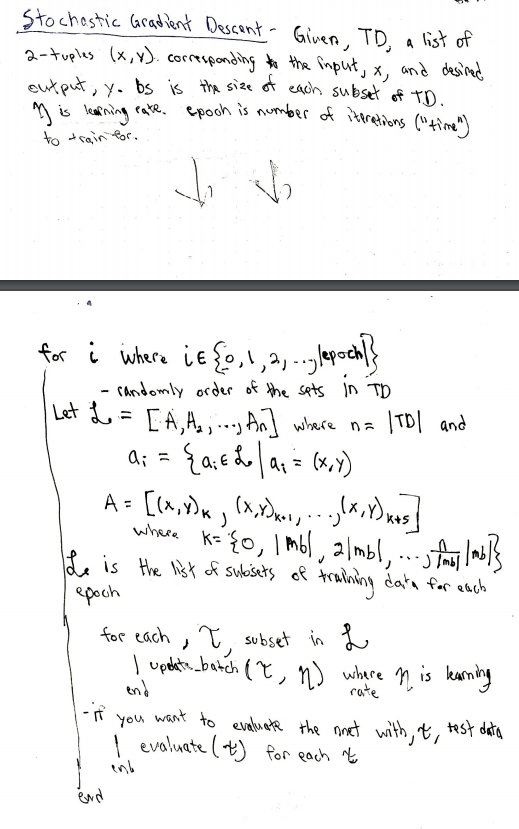 Stochastic Gradient Descent - Given, TD, a list of
2-tuples (x,y) corresponding to the input, x, and desired
output, y. bs is the size of each subset of TD.
η is learning rate. epoch is number of iterations ("time")
to train for.
for i where i∈{0,1,2,...,|epoch|}
- randomly order of the sets in TD
Let ℒ = [A₁,A₂,...,Aₙ] where n = |TD| and
aᵢ = {aᵢ∈ℒ | aᵢ = (x,y)
A = [(x,y)ₖ, (x,y)ₖ₊₁, ..., (x,y)ₖ₊ₛ]
where k = {0, |mb|, 2|mb|, ..., n/|mb| |mb|}
ℒ is the list of subsets of training data for each
epoch
for each, τ, subset in ℒ
| update_batch(τ, η) where η is learning
end rate
- if you want to evaluate the nnet with, t, test data
| evaluate(t) for each t
end
end